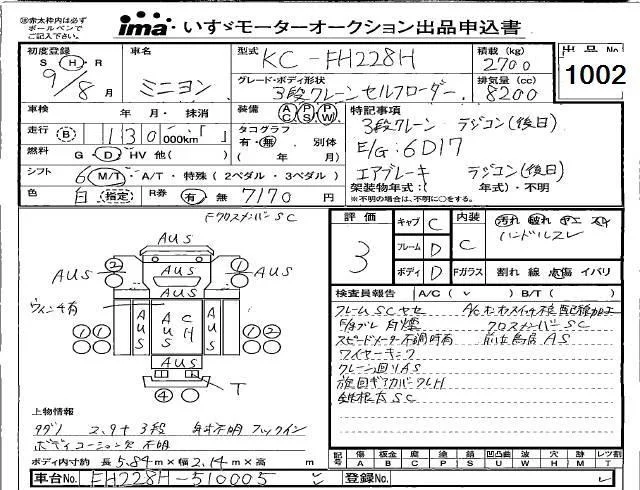 ※赤太枠内は必ず
ボールペンで
ご記入下さい。
ima いすゞモーターオークション出品申込書
初度登録 S H・R 9/8月
車名 ミニヨン
型式 KC-FH228H
積載量(kg) 2700
出品No.
1002
グレード・ボディ形状 3段クレーンセルフローダー
排気量(cc) 8200
車検 年 月・抹消
装備 AC PS PW
特記事項
走行 B 130 000km
タコグラフ 有・無 別体
3段クレーン ラジコン(後日)
燃料 G・D・HV 他( )
( 年 月)
E/G:6D17
シフト 6 M/T・A/T・特殊(2ペダル・3ペダル)
エアブレーキ ラジコン(後日)
架装物年式:( 年式)・不明
色 白 指定
R券 有 無 7170円
※不明の場合は、不明に○をする。
Fクロスメンバー SC
評価 3
キャブ C
内装 C
汚れ 破れ コゲ スレ
ハンドルスレ
フレーム D
ボディ D
Fガラス 割れ 線 点傷 イバリ
AUS
② ①
AUS AUS
AUS
ウィンチ有
AUS AUS CH AUS
①① ①②
AUS
④ T
検査員報告 A/C( ✓ ) B/T( )
フレームSCサビ
クロスメンバーSC
スピードメーター不調時有
ワイヤーキンク
クレーン廻りAS
旋回ギアカバーワレH
上物情報
タダノ 2.9t 3段 年式不明 フックイン
不明
ボディ内寸約 長5.84m×幅2.14m×高 m
記号 傷 板金 腐 塗 錆 凹凸曲 波 穴 跡 レツ割
A B C P S U W H M T
車台No. FH228H-510005
登録No.